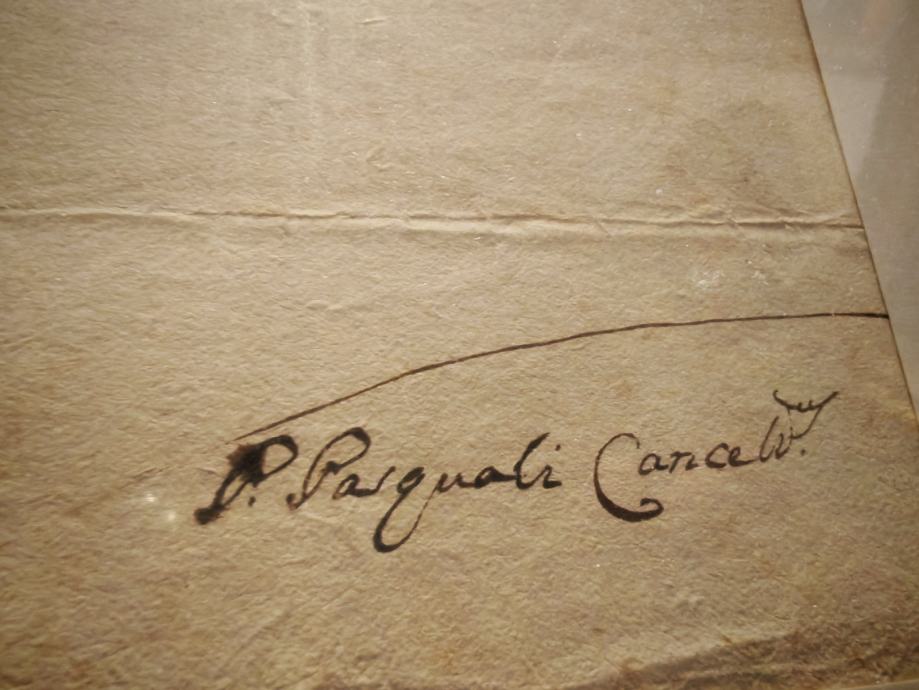 P. Pasquali Cancell.